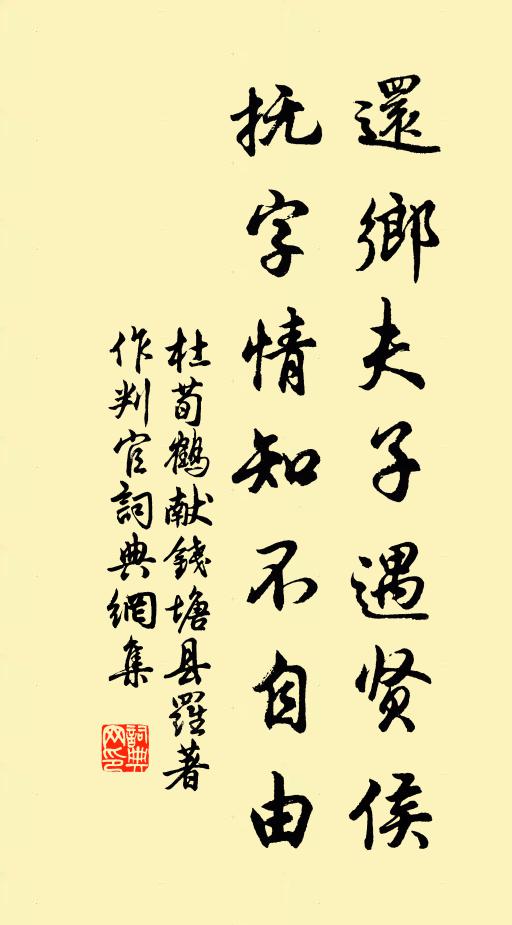 還鄉夫子遇贤侯
抚字情知不自由
杜荀鶴献錢塘县羅著
作判官詞典網集
詞典
网印